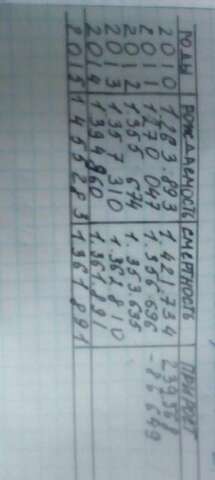 ГОДЫ РОЖДАЕМОСТЬ СМЕРТНОСТЬ ПРИРОСТ
2010 1.263.893 1.421.734
2011 1.270.047 1.356.696 -86649
2012 1.355.674 1.353.635
2013 1.357.310 1.361.810
2014 1.394.860 1.361.891
2015 1455283 1361891